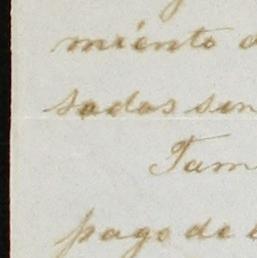 miento
sadas sin
Tam
pago de